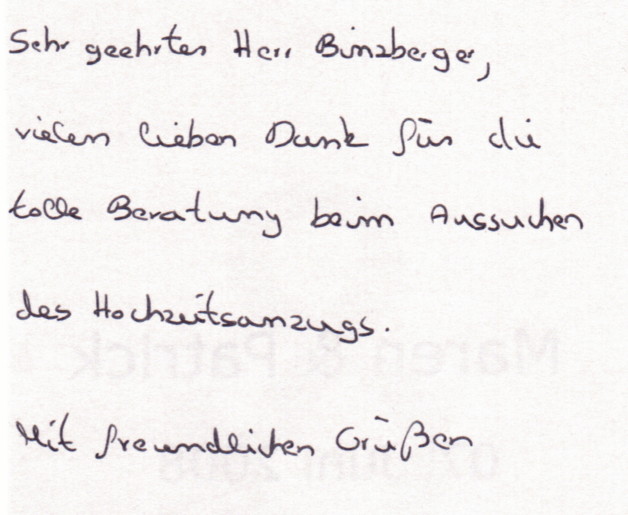 Sehr geehrter Herr Binzberger,
vielen lieben Dank für die
tolle Beratung beim Aussuchen
des Hochzeitsanzugs.
Maren & Patrick
Mit freundlichen Grüßen
07. Juni 2008